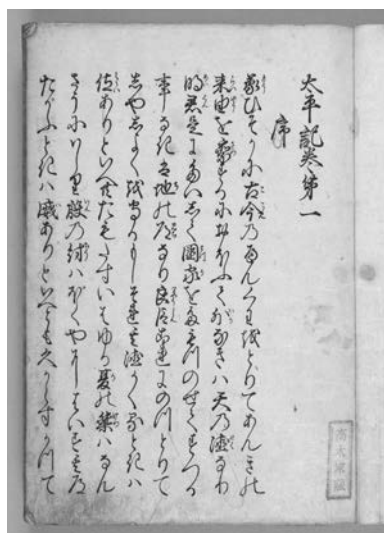 太平記巻第一
序
蒙ひそかに古今のへんくわをとりてあんきの
来由を察するにおほふてほかなきハ天の徳なり
明君是にたいして国家をたもつのせてすつる
事なき者地の道なり良臣是にのつとりて
しやしよくを守るもし其徳かくるときハ
位ありといへともたもたすいはゆる夏の桀ハなん
さうにはしり殷の紂ハほくやにはいす其道
たかふときハ威ありといへとも久しからすかつて